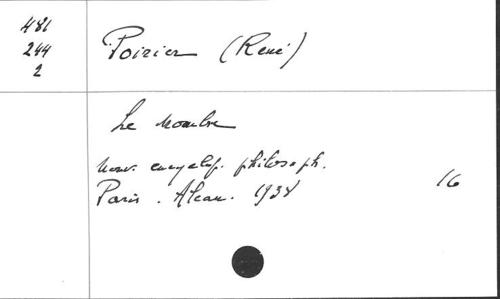 481
244
2
Poirier (René)
Le Nombre
Nouv. encyclop. philosoph.
Paris. Alcan. 1938
16